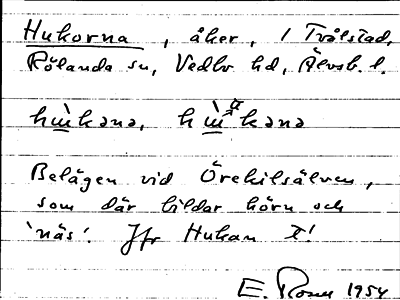 Hukorna, åker, i Trålstad,
Rölanda sn, Vedbo hd, Älvsb. l.
hù̲kəna, hù̲ᵃkəna
Belägen vid Örekilsälven,
som där bildar hörn och
'näs'. Jfr Hukan t!
E. 1954